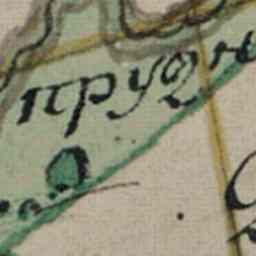 прудн